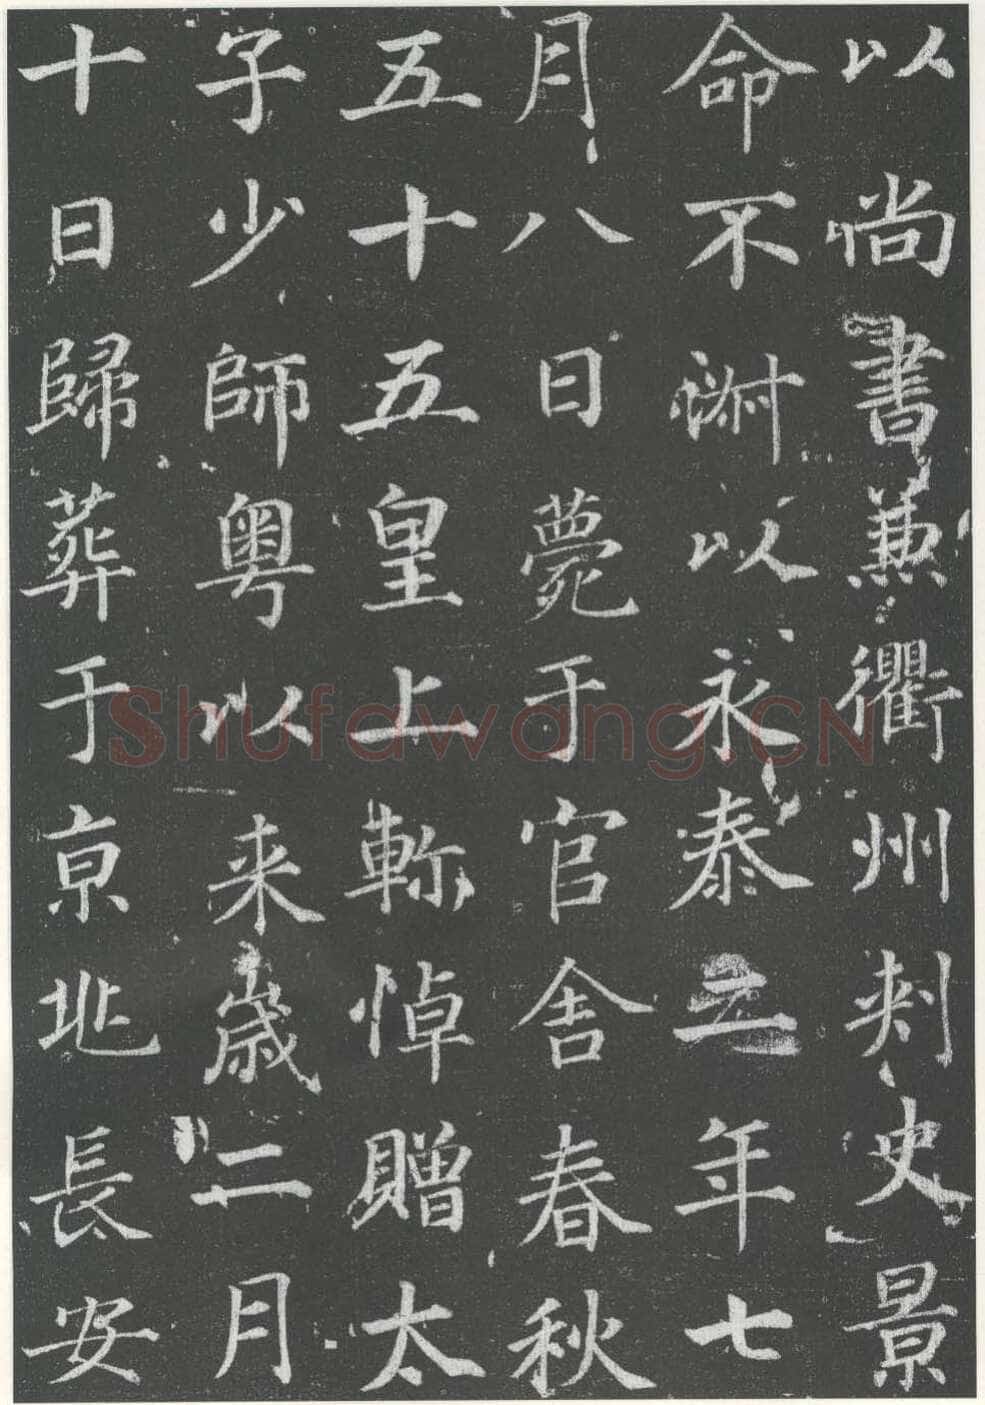 以尚書兼衢州刺史景
命不淑以永泰二年七
月八日薨于官舍春秋
五十五皇上軫悼贈太
子少師粵以来歲二月
十日歸葬于京兆長安
Shufawang.CN